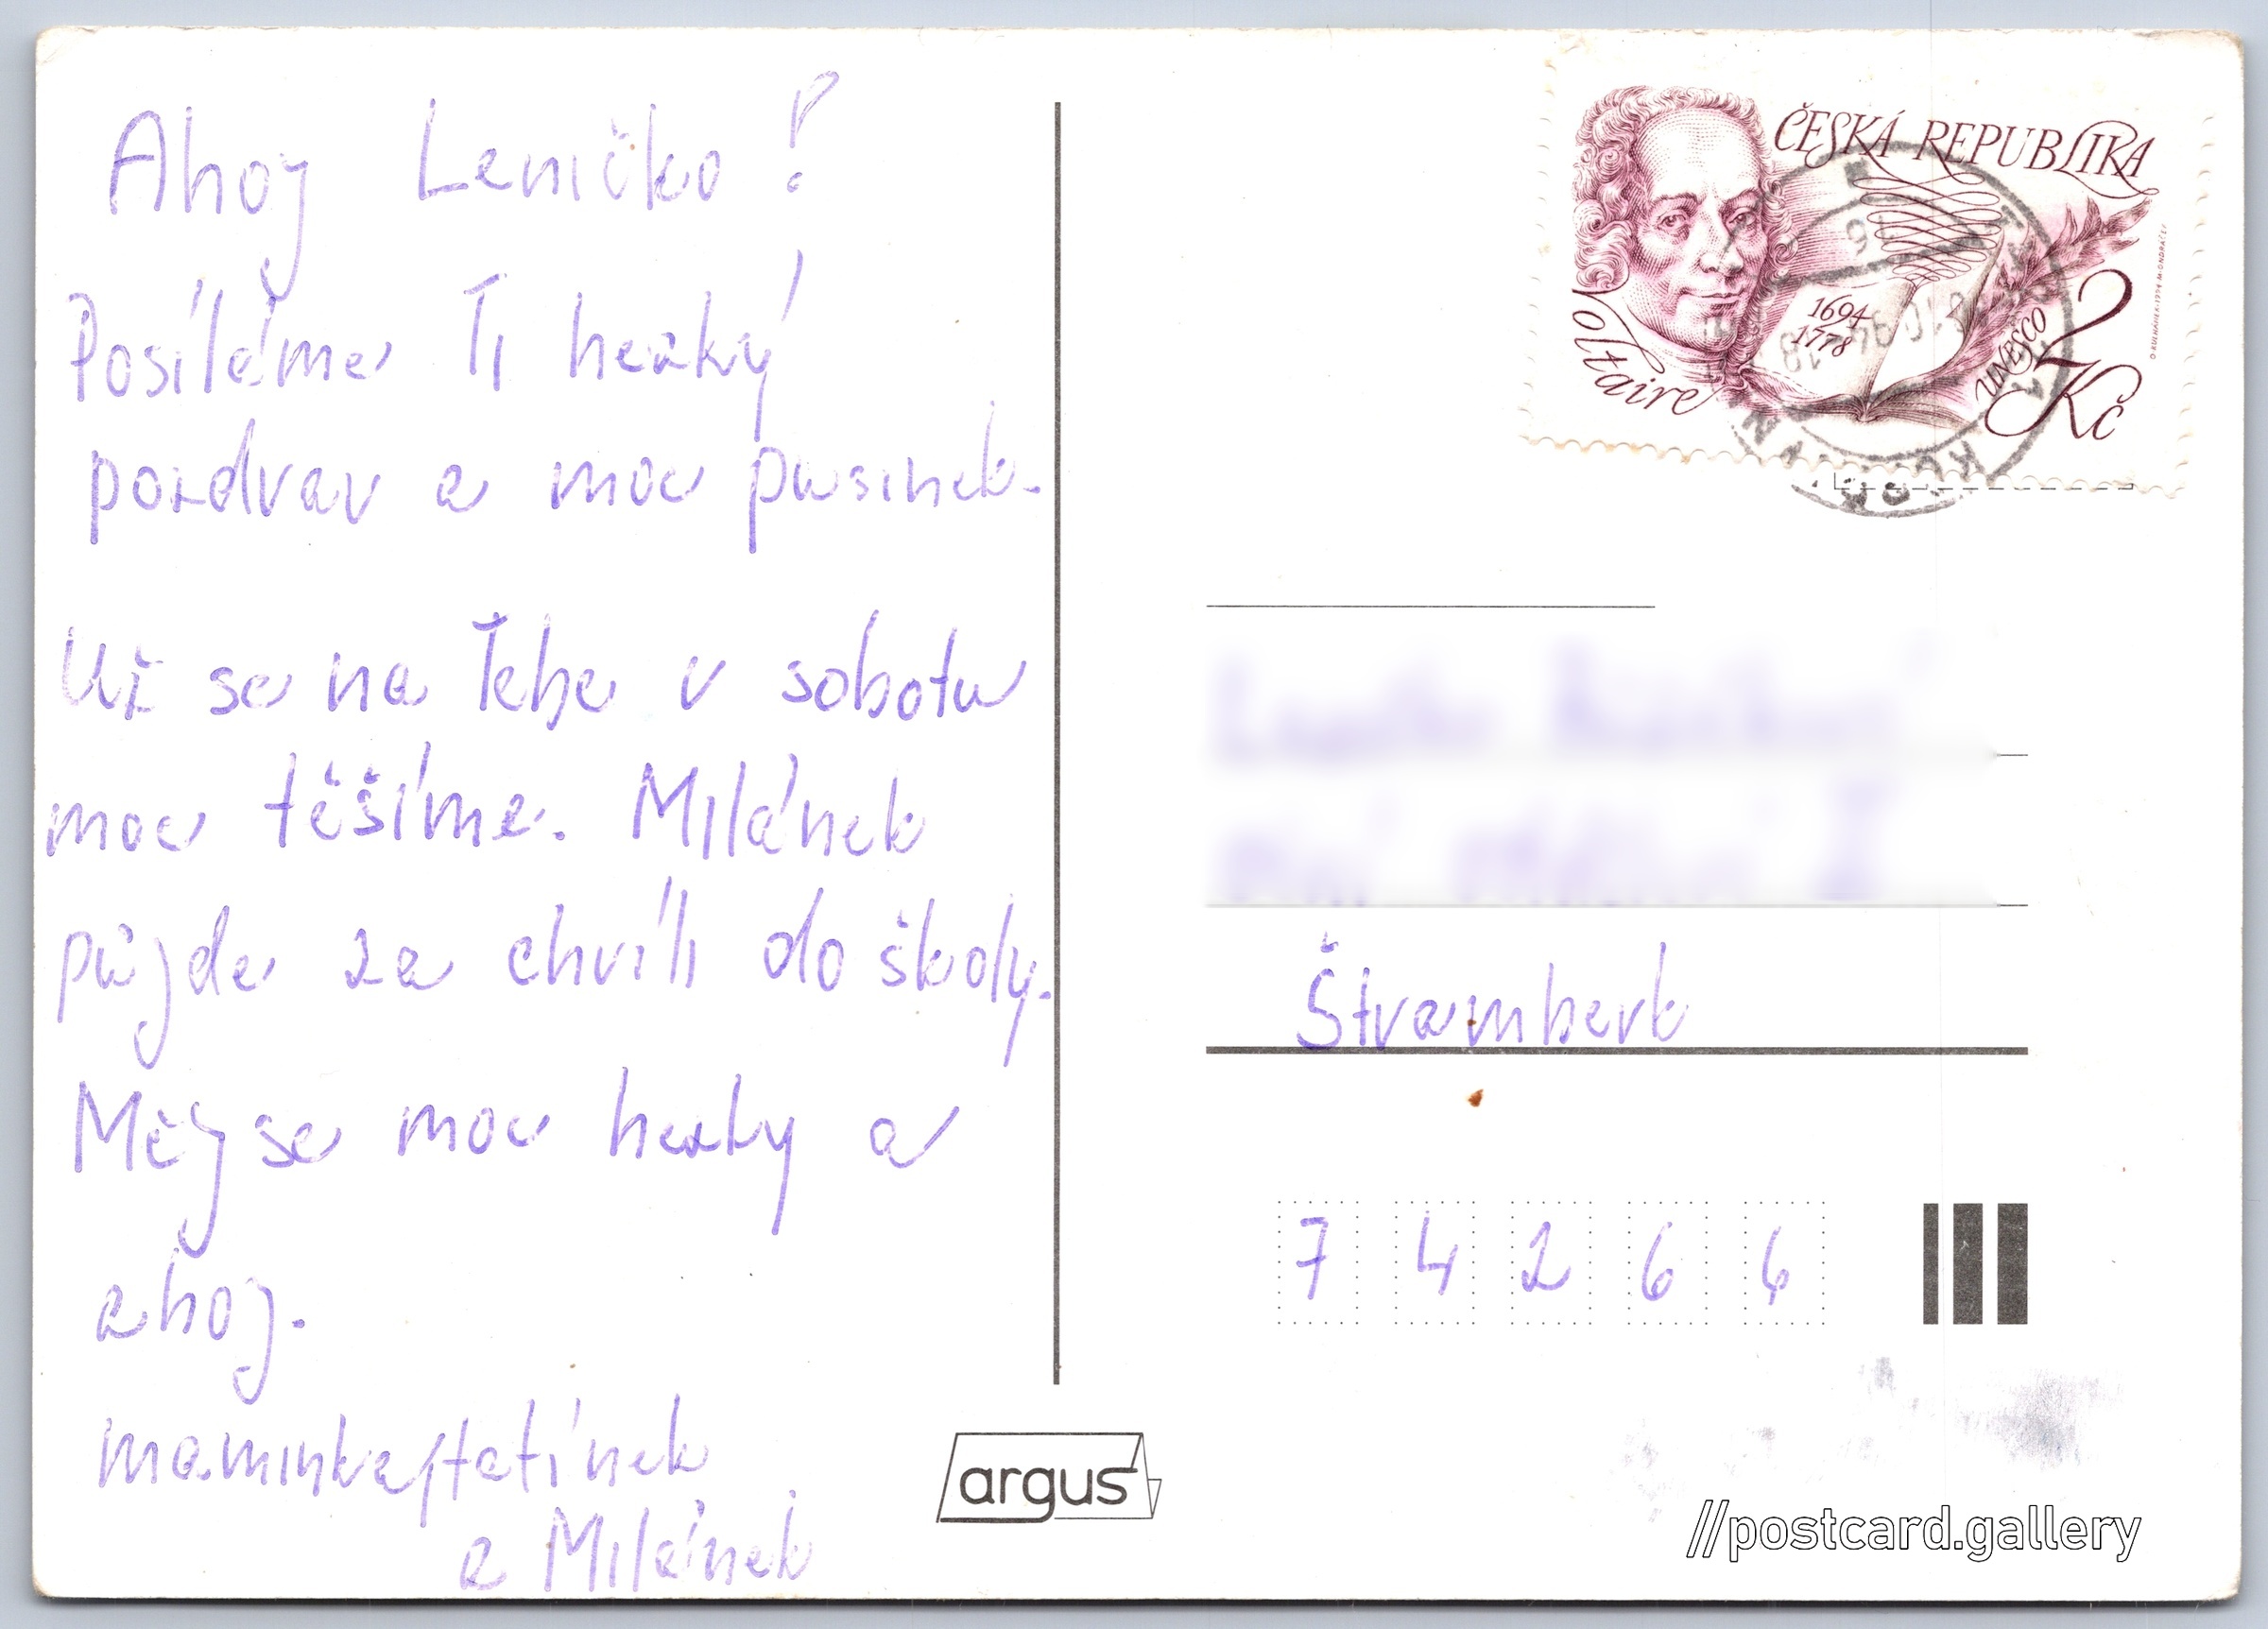 Ahoj Leničko!
Posíláme Ti hezký
pozdrav a moc pusinek.
Už se na Tebe v sobotu
moc těšíme. Milánek
půjde za chvíli do školy.
Měj se moc hezky a
ahoj.
maminka, tatínek
a Milánek
ČESKÁ REPUBLIKA
Voltaire
1694
1778
UNESCO
2 Kč
Štramberk
7 4 2 6 6
argus
//postcard.gallery